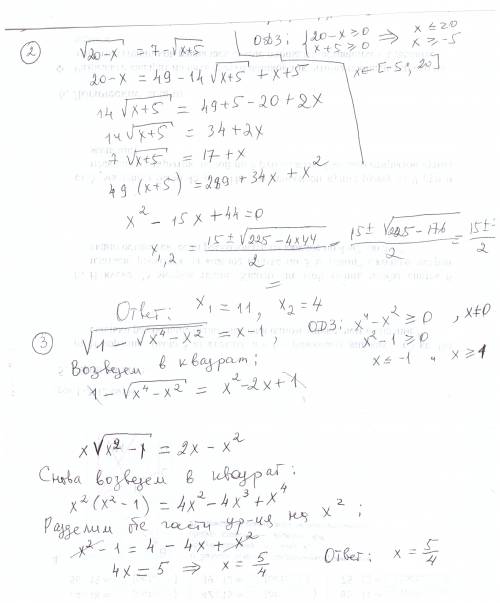 ② √(20-x) = 7 - √(x+5)    ОДЗ: { 20-x ≥ 0 ⇒ x ≤ 20
x+5 ≥ 0    x ≥ -5
20-x = 49 - 14√(x+5) + x+5    x ∈ [-5; 20]
14√(x+5) = 49+5-20+2x
14√(x+5) = 34+2x
7√(x+5) = 17+x
49(x+5) = 289+34x+x²
x² - 15x + 44 = 0
x₁,₂ = (15 ± √(225-4×44))/2 = (15 ± √(225-176))/2 = (15 ±)/2
=
Ответ: x₁ = 11, x₂ = 4
③ √(1 - √(x⁴-x²)) = x-1,    ОДЗ: x⁴-x² ≥ 0, x≠0
x²-1 ≥ 0
Возведем в квадрат;    x ≤ -1 и x ≥ 1
1 - √(x⁴-x²) = x²-2x+1
x√(x²-1) = 2x-x²
Снова возведем в квадрат:
x²(x²-1) = 4x²-4x³+x⁴
Разделим обе части ур-ия на x²;
x²-1 = 4-4x+x²
4x = 5 ⇒ x = 5/4    Ответ: x = 5/4